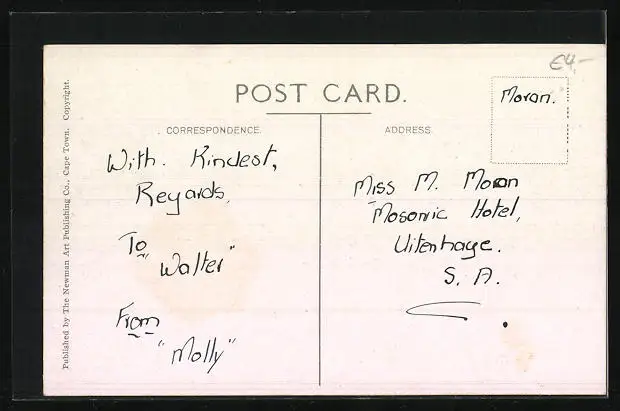 £4-
POST CARD.
Moran.
CORRESPONDENCE.
ADDRESS.
With. Kindest,
Regards,
To
"Walter"
From
"Molly"
Miss M. Moran
Masonic Hotel,
Uitenhage.
S. A.
Published by The Newman Art Publishing Co., Cape Town. Copyright.